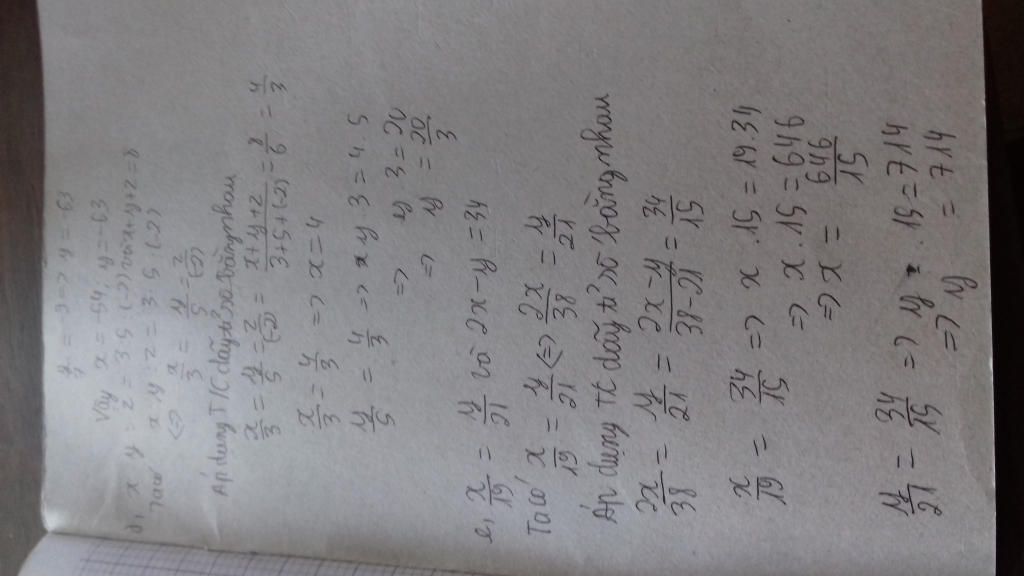 y/7 = -9 => y = -63
Vậy x = -54, y = -63
d, x y z = 3 5 (-2) và x+y+z = 8
Ta có x y z = 3 5 (-2)
<=> x/3 = y/5 = z/(-2)
Áp dụng T/C dãy tỉ số bằng nhau
x/3 = y/5 = z/(-2) = x+y+z/3+5+(-2) = 8/6 = 4/3
x/3 = 4/3 => x = 4
y/5 = 4/3 => x y . 3 = 4 . 5
=> y . 3 = 20
=> y = 20/3
e, x/19 = y/21 và 2x - y = 34
Ta có x/19 = y/21 <=> 2x/38 = y/21
Áp dụng T/C dãy tỉ số bằng nhau
2x/38 = y/21 = 2x-y/38-21 = 34/15
x/19 = 34/15 => x . 15 = 19.34
=> x . 15 = 646
=> x = 646/15
y/21 = 34/15 => y . 15 = 714
=> y = 714